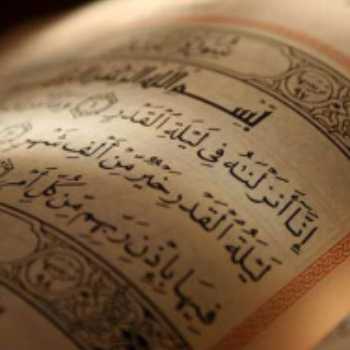 بِسْمِ اللَّهِ الرَّحْمَٰنِ
إِنَّا أَنزَلْنَٰهُ فِى لَيْلَةِ ٱلْقَدْرِ ١ وَمَا
لَيْلَةُ ٱلْقَدْرِ خَيْرٌ مِّنْ أَلْفِ شَهْرٍ
فِيهَا بِإِذْنِ رَبِّهِم مِّن كُلِّ أَمْرٍ